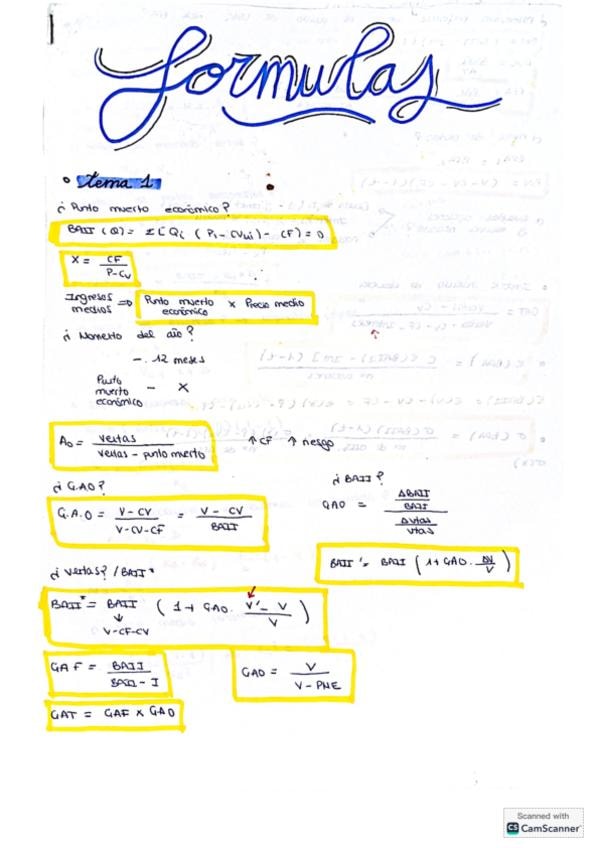 formulas
• tema 1
¿ Punto muerto económico?
BAII (Q) = Σ [Qi (Pi - CVui) - CF) = 0
X = CF / P - Cv
Ingresos medios ⇒ Punto muerto económico x Precio medio
¿ Momento del año?
-. 12 meses
Punto muerto económico - X
Ao = ventas / ventas - punto muerto
↑ CF ↑ riesgo
¿ G.A.O?
G.A.O = V - CV / V - CV - CF = V - CV / BAII
¿ BAII?
GAO = ΔBAII / BAII / Δvtas / vtas
BAII' = BAII (1 + GAO . ΔV / V)
¿ Ventas? / BAII*
BAII* = BAII (1 + GAO . V' - V / V)
↓
V-CF-CV
GAF = BAII / BAII - I
GAO = V / V - PME
GAT = GAF x GAO
Scanned with
CS CamScanner